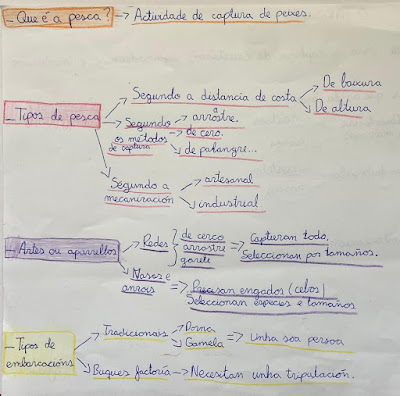 - Que é a pesca? → Actividade de captura de peixes.
Segundo a distancia de costa → De baixura
→ De altura
- Tipos de pesca
Segundo os métodos de captura → a arrastre.
→ de cerco.
→ de palangre...
Segundo a mecanización → artesanal
→ industrial
- Artes ou aparrellos
Redes } de cerco arrastre garete => Capturan todo.
Seleccionan por tamaños.
Nasas e anzois => Precisan engados (cebos)
Seleccionan especies e tamaños
- Tipos de embarcacións
Tradicionais → Dorna
→ Gamela => Unha soa persoa
Buques factoría → Necesitan unha tripulación.